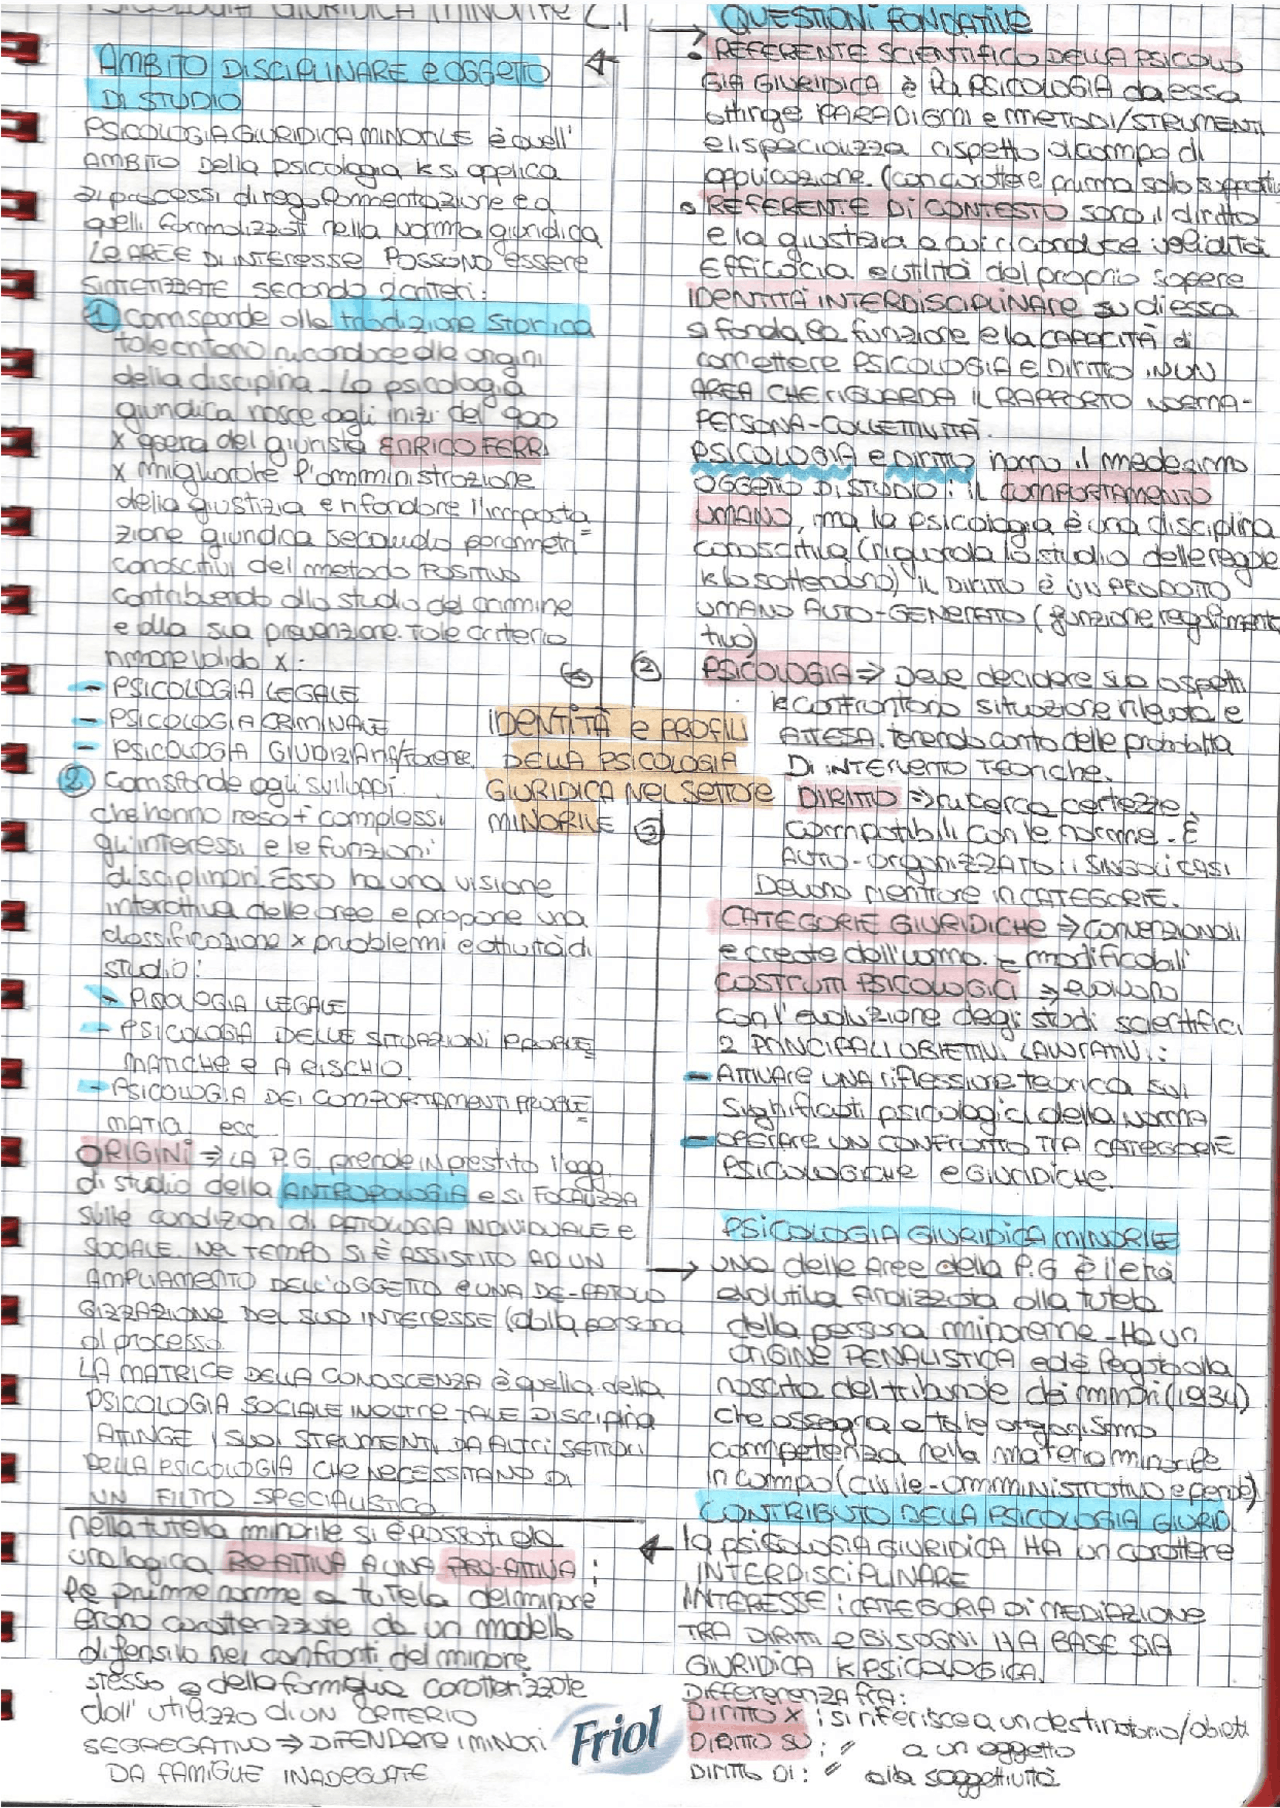 PSICOLOGIA GIURIDICA MINORILE C.1
AMBITO DISCIPLINARE e OGGETTO
DI STUDIO
PSICOLOGIA GIURIDICA MINORILE è quell'
AMBITO Della psicologia k si applica
ai processi di regolamentazione e a
quelli formalizzati nella norma giuridica
Le AREE DI INTERESSE POSSONO essere
SINTETIZZATE secondo 2 criteri:
1 Corrisponde alla tradizione storica
tale criterio riconduce alle origini
della disciplina. La psicologia
giuridica nasce agli inizi del 900
x opera del giurista ENRICO FERRI
x migliorare l'amministrazione
della giustizia e rifondare l'imposta
zione giuridica secondo parametri
conoscitivi del metodo POSITIVO
contribuendo allo studio del crimine
e alla sua prevenzione. Tale criterio
rimane valido x:
- PSICOLOGIA LEGALE
- PSICOLOGIA CRIMINALE
- PSICOLOGIA GIUDIZIARIA/forense
2 Corrisponde agli sviluppi
che hanno reso + complessi
gli interessi e le funzioni
disciplinari. Esso ha una visione
interattiva delle aree e propone una
classificazione x problemi e attività di
studio:
- PSICOLOGIA LEGALE
- PSICOLOGIA DELLE SITUAZIONI PROBLE
MATICHE e A RISCHIO
- PSICOLOGIA DEI COMPORTAMENTI PROBLE
MATICI ecc
ORIGINI ⇒ LA P.G. prende in prestito l'ogg.
di studio della ANTROPOLOGIA e si FOCALIZZA
sulle condizioni di PATOLOGIA INDIVIDUALE e
SOCIALE. Nel TEMPO SI È ASSISTITO AD UN
AMPLIAMENTO DELL'OGGETTO e UNA DE-PATOLO
GIZZAZIONE DEL SUO INTERESSE (dalla persona
al processo
LA MATRICE DELLA CONOSCENZA è quella della
PSICOLOGIA SOCIALE INOLTRE TALE DISCIPLINA
ATTINGE I SUOI STRUMENTI DA ALTRI SETTORI
DELLA PSICOLOGIA CHE NECESSITANO DI
UN FILTRO SPECIALISTICO
nella tutela minorile si è passati da
una logica REATTIVA A UNA PRO-ATTIVA:
le prime norme a tutela del minore
erano caratterizzate da un modello
difensivo nei confronti del minore
stesso e della famiglia caratterizzate
dall'utilizzo di UN CRITERIO
SEGREGATIVO ⇒ DIFENDERE i MINORI
DA FAMIGLIE INADEGUATE
IDENTITÀ e PROFILI
DELLA PSICOLOGIA
GIURIDICA Nel SETTORE
MINORILE
2
3
QUESTIONI FONDATIVE
• REFERENTE SCIENTIFICO DELLA PSICOLO
GIA GIURIDICA è la PSICOLOGIA da essa
attinge PARADIGMI e METODI/STRUMENTI
e li specializza rispetto al campo di
applicazione. (con carattere prima solo
• REFERENTE DI CONTESTO sono il diritto
e la giustizia a cui riconduce validità
EFFICACIA e utilità del proprio sapere
IDENTITÀ INTERDISCIPLINARE su di essa
si fonda la funzione e la CAPACITÀ di
connettere PSICOLOGIA E DIRITTO IN UN
AREA CHE riguarda IL RAPPORTO NORMA-
PERSONA-COLLETTIVITÀ.
PSICOLOGIA e DIRITTO hanno il medesimo
OGGETTO DI STUDIO: il COMPORTAMENTO
UMANO, ma la psicologia è una disciplina
conoscitiva (riguarda lo studio delle regole
k lo sottendono) IL DIRITTO È UN PRODOTTO
UMANO AUTO-GENERATO (funzione regolamenta
tiva)
PSICOLOGIA ⇒ Deve decidere su aspetti
k confrontano situazione rilevata e
ATTESA, tenendo conto delle probabilità
DI INTERVENTO TEORICHE.
DIRITTO ⇒ ricerca certezze
compatibili con le norme. È
AUTO-organizzato: i SINGOLI CASI
Devono rientrare in CATEGORIE.
CATEGORIE GIURIDICHE ⇒ Convenzionali
e create dall'uomo. = modificabili
COSTRUTTI PSICOLOGICI ⇒ evolvono
con l'evoluzione degli studi scientifici
2 PRINCIPALI OBIETTIVI LAVORATIVI:
- ATTIVARE UNA riflessione teorica sui
significati psicologici della norma
- OPERARE UN CONFRONTO TRA CATEGORIE
PSICOLOGICHE e GIURIDICHE.
PSICOLOGIA GIURIDICA MINORILE
una delle Aree della P.G è l'età
evolutiva finalizzata alla tutela
della persona minorenne. Ha un
ORIGINE PENALISTICA ed è legata alla
nascita del tribunale dei minori (1934)
che assegna a tale organismo
competenza nella materia minorile
in campo (civile-amministrativo e penale)
CONTRIBUTO DELLA PSICOLOGIA GIURID.
la psicologia GIURIDICA HA un carattere
INTERDISCIPLINARE
INTERESSE: CATEGORIA DI MEDIAZIONE
TRA DIRITTI e BISOGNI HA BASE SIA
GIURIDICA k PSICOLOGICA.
Differenza fra:
DIRITTO X: si riferisce a un destinatario/obiett.
DIRITTO SU: // a un oggetto
DIRITTO DI: // alla soggettività
Friol